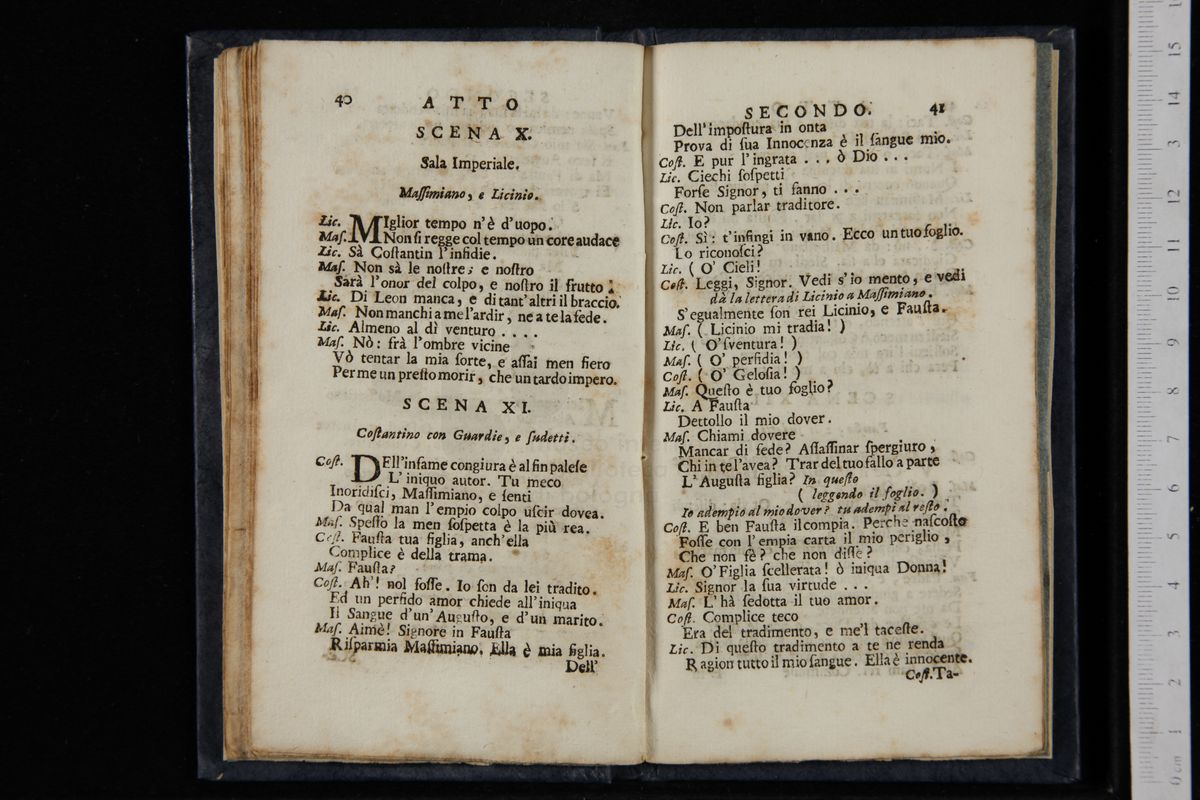 40 ATTO
SCENA X.
Sala Imperiale.
Maſſimiano, e Licinio.
Lic. MIglior tempo n'è d'uopo.
Maſ. Non ſi regge col tempo un core audace
Lic. Sà Coſtantin l'inſidie.
Maſ. Non sà le noſtre; e noſtro
Sarà l'onor del colpo, e noſtro il frutto.
Lic. Di Leon manca, e di tant'altri il braccio.
Maſ. Non manchi a me l'ardir, ne a te la fede.
Lic. Almeno al dì venturo ....
Maſ. Nò: frà l'ombre vicine
Vò tentar la mia ſorte, e aſſai men fiero
Per me un preſto morir, che un tardo impero.
SCENA XI.
Coſtantino con Guardie, e ſudetti.
Coſt. DEll'infame congiura è al fin paleſe
L'iniquo autor. Tu meco
Inoridiſci, Maſſimiano, e ſenti
Da qual man l'empio colpo uſcir dovea.
Maſ. Speſſo la men ſoſpetta è la più rea.
Coſt. Fauſta tua figlia, anch'ella
Complice è della trama.
Maſ. Fauſta?
Coſt. Ah'! nol foſſe. Io ſon da lei tradito.
Ed un perfido amor chiede all'iniqua
Il Sangue d'un'Auguſto, e d'un marito.
Maſ. Aimè! Signore in Fauſta
Riſparmia Maſſimiano. Ella è mia figlia.
Dell'
SECONDO. 41
Dell'impoſtura in onta
Prova di ſua Innocenza è il ſangue mio.
Coſt. E pur l'ingrata ... ò Dio ...
Lic. Ciechi ſoſpetti
Forſe Signor, ti fanno ...
Coſt. Non parlar traditore.
Lic. Io?
Coſt. Sì: t'infingi in vano. Ecco un tuo foglio.
Lo riconoſci?
Lic. ( O' Cieli!
Coſt. Leggi, Signor. Vedi s'io mento, e vedi
dà la lettera di Licinio a Maſſimiano.
S'egualmente ſon rei Licinio, e Fauſta.
Maſ. ( Licinio mi tradia! )
Lic. ( O' ſventura! )
Maſ. ( O' perfidia! )
Coſt. ( O' Geloſia! )
Maſ. Queſto è tuo foglio?
Lic. A Fauſta
Dettollo il mio dover.
Maſ. Chiami dovere
Mancar di fede? Aſſaſſinar ſpergiuro,
Chi in te l'avea? Trar del tuo fallo a parte
L'Auguſta figlia? In queſto
( leggendo il foglio. )
Io adempio al mio dover? tu adempi al reſto.
Coſt. E ben Fauſta il compia. Perche naſcoſto
Foſſe con l'empia carta il mio periglio,
Che non fè? che non diſſe?
Maſ. O' Figlia ſcellerata! ò iniqua Donna!
Lic. Signor la ſua virtude ...
Maſ. L'hà ſedotta il tuo amor.
Coſt. Complice teco
Era del tradimento, e me'l taceſte.
Lic. Di queſto tradimento a te ne renda
Ragion tutto il mio ſangue. Ella è innocente.
Coſt. Ta-
0 cm 1 2 3 4 5 6 7 8 9 10 11 12 13 14 15